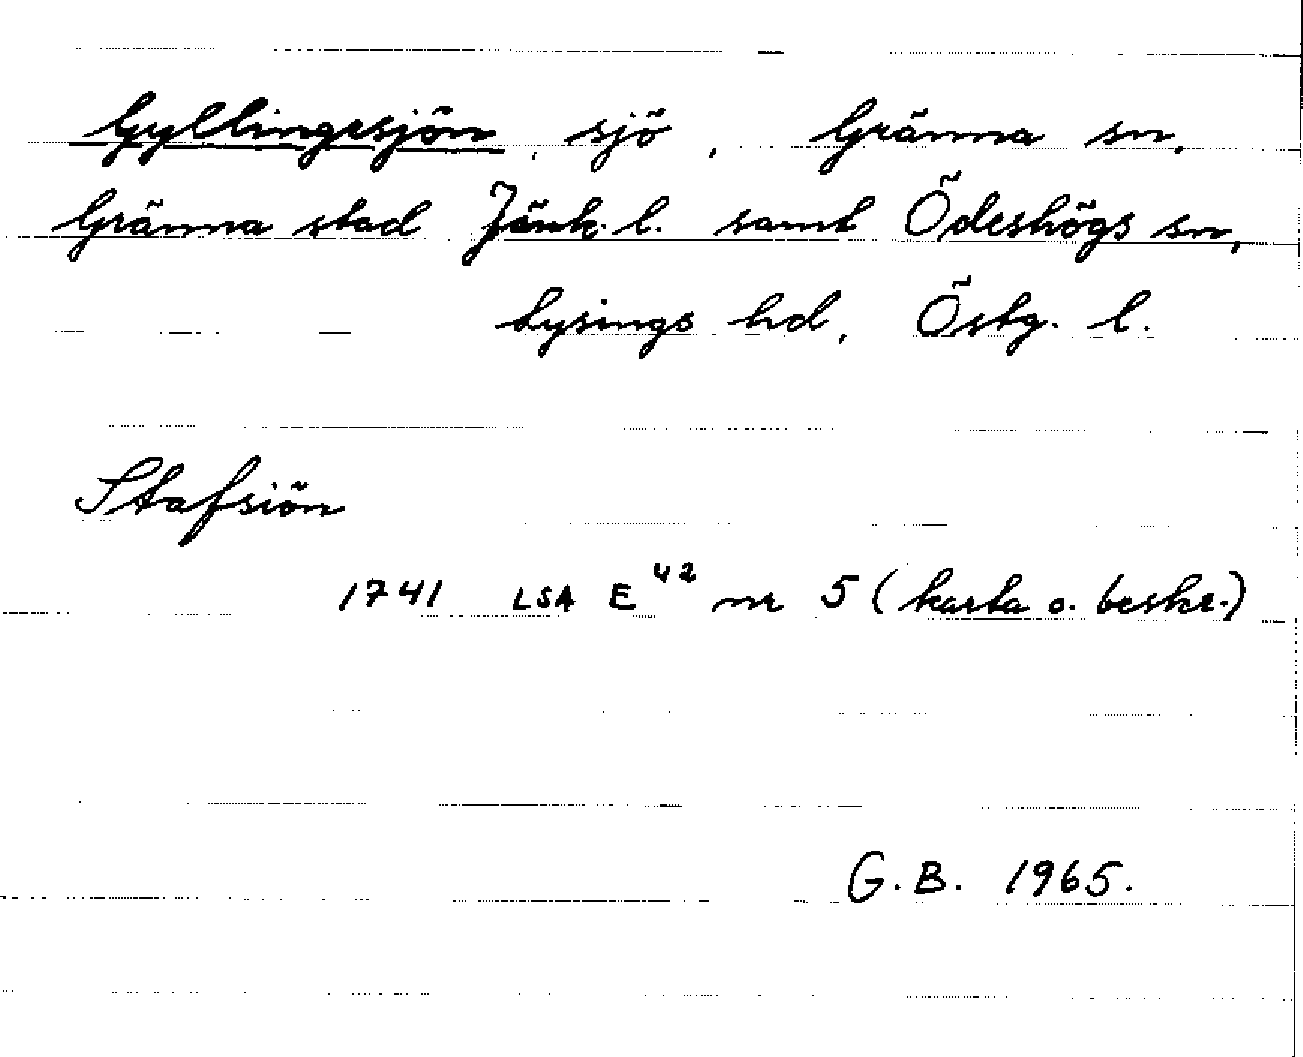 Gyllingesjön, sjö, Gränna sn,
Gränna stad Jönk. l. samt Ödeshögs sn,
Lysings hd, Östg. l.
Stafsiön
1741 LSA E 42 nr 5 (karta o. beskr.)
G.B. 1965.